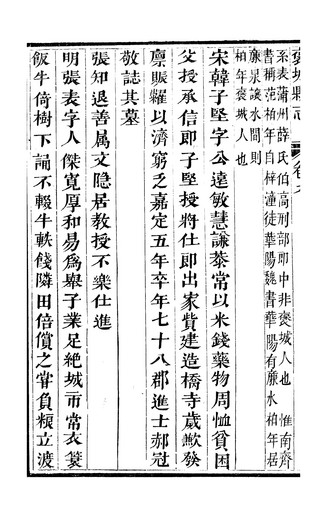 襃城縣志 卷之
系表蒲州薛氏伯高刑部郎中非褒城人也 惟南齊
書稱范柏年自梓潼徙華陽魏書華陽有廉水柏年居
廉泉讓水間則
柏年褒城人也
宋韓子堅字公遠敏慧謙恭常以米錢藥物周恤貧困
父授承信郎子堅授將仕郎出家貲建造橋寺歲歉發
廩賑糶以濟窮乏嘉定五年卒年七十八郡進士郝冠
敬誌其墓
張知退善属文隐居教授不樂仕進
明張表字人傑寬厚和易為舉子業足絶城市常衣簑
飯牛倚樹下誦不輟牛軼餞隣田倍償之甞負糗立渡